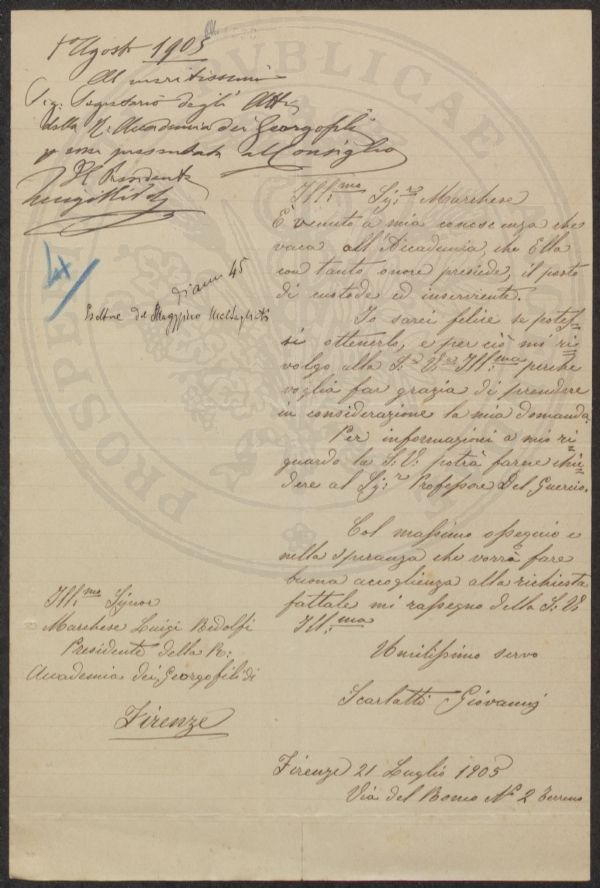 1° Agosto 1905
Al meritissimo
Sig. Segretario degli Atti
della R. Accademia dei Georgofili
p esser presentata al Consiglio
Il Presidente
Luigi Ridolfi
4
di anni 45
Ill.mo Sig.re Marchese
È venuto a mia conoscenza che
vaca all'Accademia, che Ella
con tanto onore presiede, il posto
di custode ed inserviente.
Io sarei felice se potes-
si ottenerlo, e per ciò mi ri-
volgo alla S.a V.ra Ill.ma perchè
voglia far grazia di prendere
in considerazione la mia domanda.
Per informazioni a mio ri-
guardo la S. V. potrà farne chie-
dere al Sig.r Professore Del Guercio.
Col massimo ossequio e
nella speranza che vorrà fare
buona accoglienza alla richiesta
fattale mi rassegno della S. V.
Ill.ma
Umilissimo servo
Scarlatti Giovanni
Ill.mo Signor
Marchese Luigi Ridolfi
Presidente della R.
Accademia dei Georgofili di
Firenze
Firenze 21 Luglio 1905
Via del Bomo N° 2 terreno
PROSPERITATI
PVBLICAE